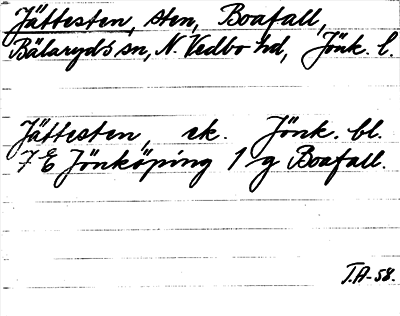 Jättesten, sten, Boafall,
Bälaryds sn, N. Vedbo hd, Jönk. l.
Jättesten, ek. Jönk. bl.
7 E Jönköping 1 g Boafall.
T.A-58.